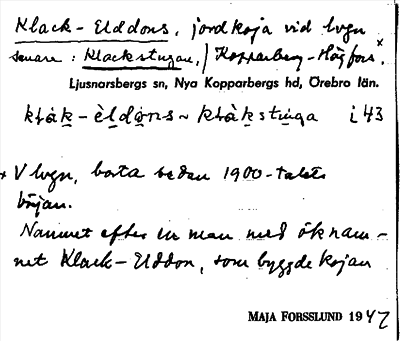 Klack-Elddons, jordkoja vid lvgn
senare: Klackstugan, / Kopparberg-Högfors x.
Ljusnarsbergs sn, Nya Kopparbergs hd, Örebro län.
i 43
x V lvgn, borta sedan 1900-talets
början.
Namnet efter en man med öknam-
net Klack-Elddon, som byggde kojan
MAJA FORSSLUND 1942